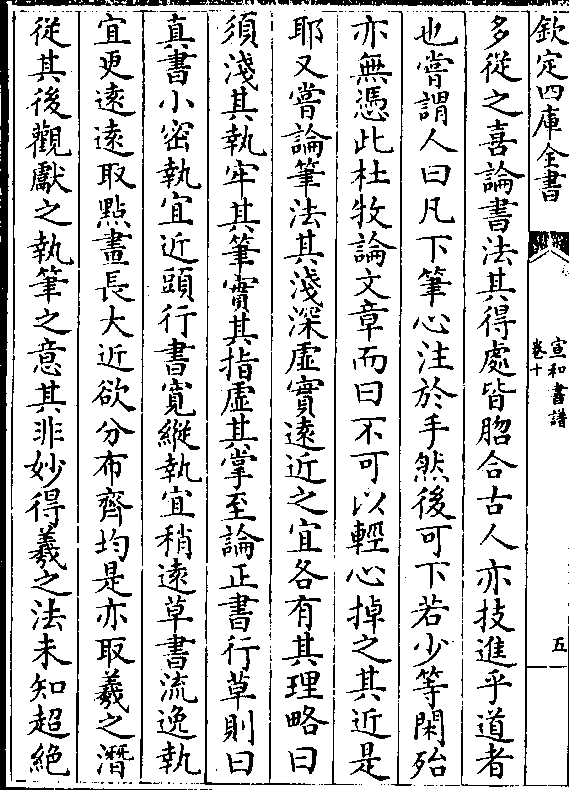 欽定四庫全書
宣和書譜
卷十
五
多從之喜論書法其得處皆脗合古人亦技進乎道者
也嘗謂人曰凡下筆心注於手然後可下若少等閑殆
亦無憑此杜牧論文章而曰不可以輕心掉之其近是
耶又嘗論筆法其淺深虛實遠近之宜各有其理略曰
須淺其執牢其筆實其指虛其掌至論正書行草則曰
真書小密執宜近頭行書寛縱執宜稍遠草書流逸執
宜更遠遠取點畫長大近欲分布齊均是亦取羲之潛
從其後觀獻之執筆之意其非妙得羲之法未知超絶